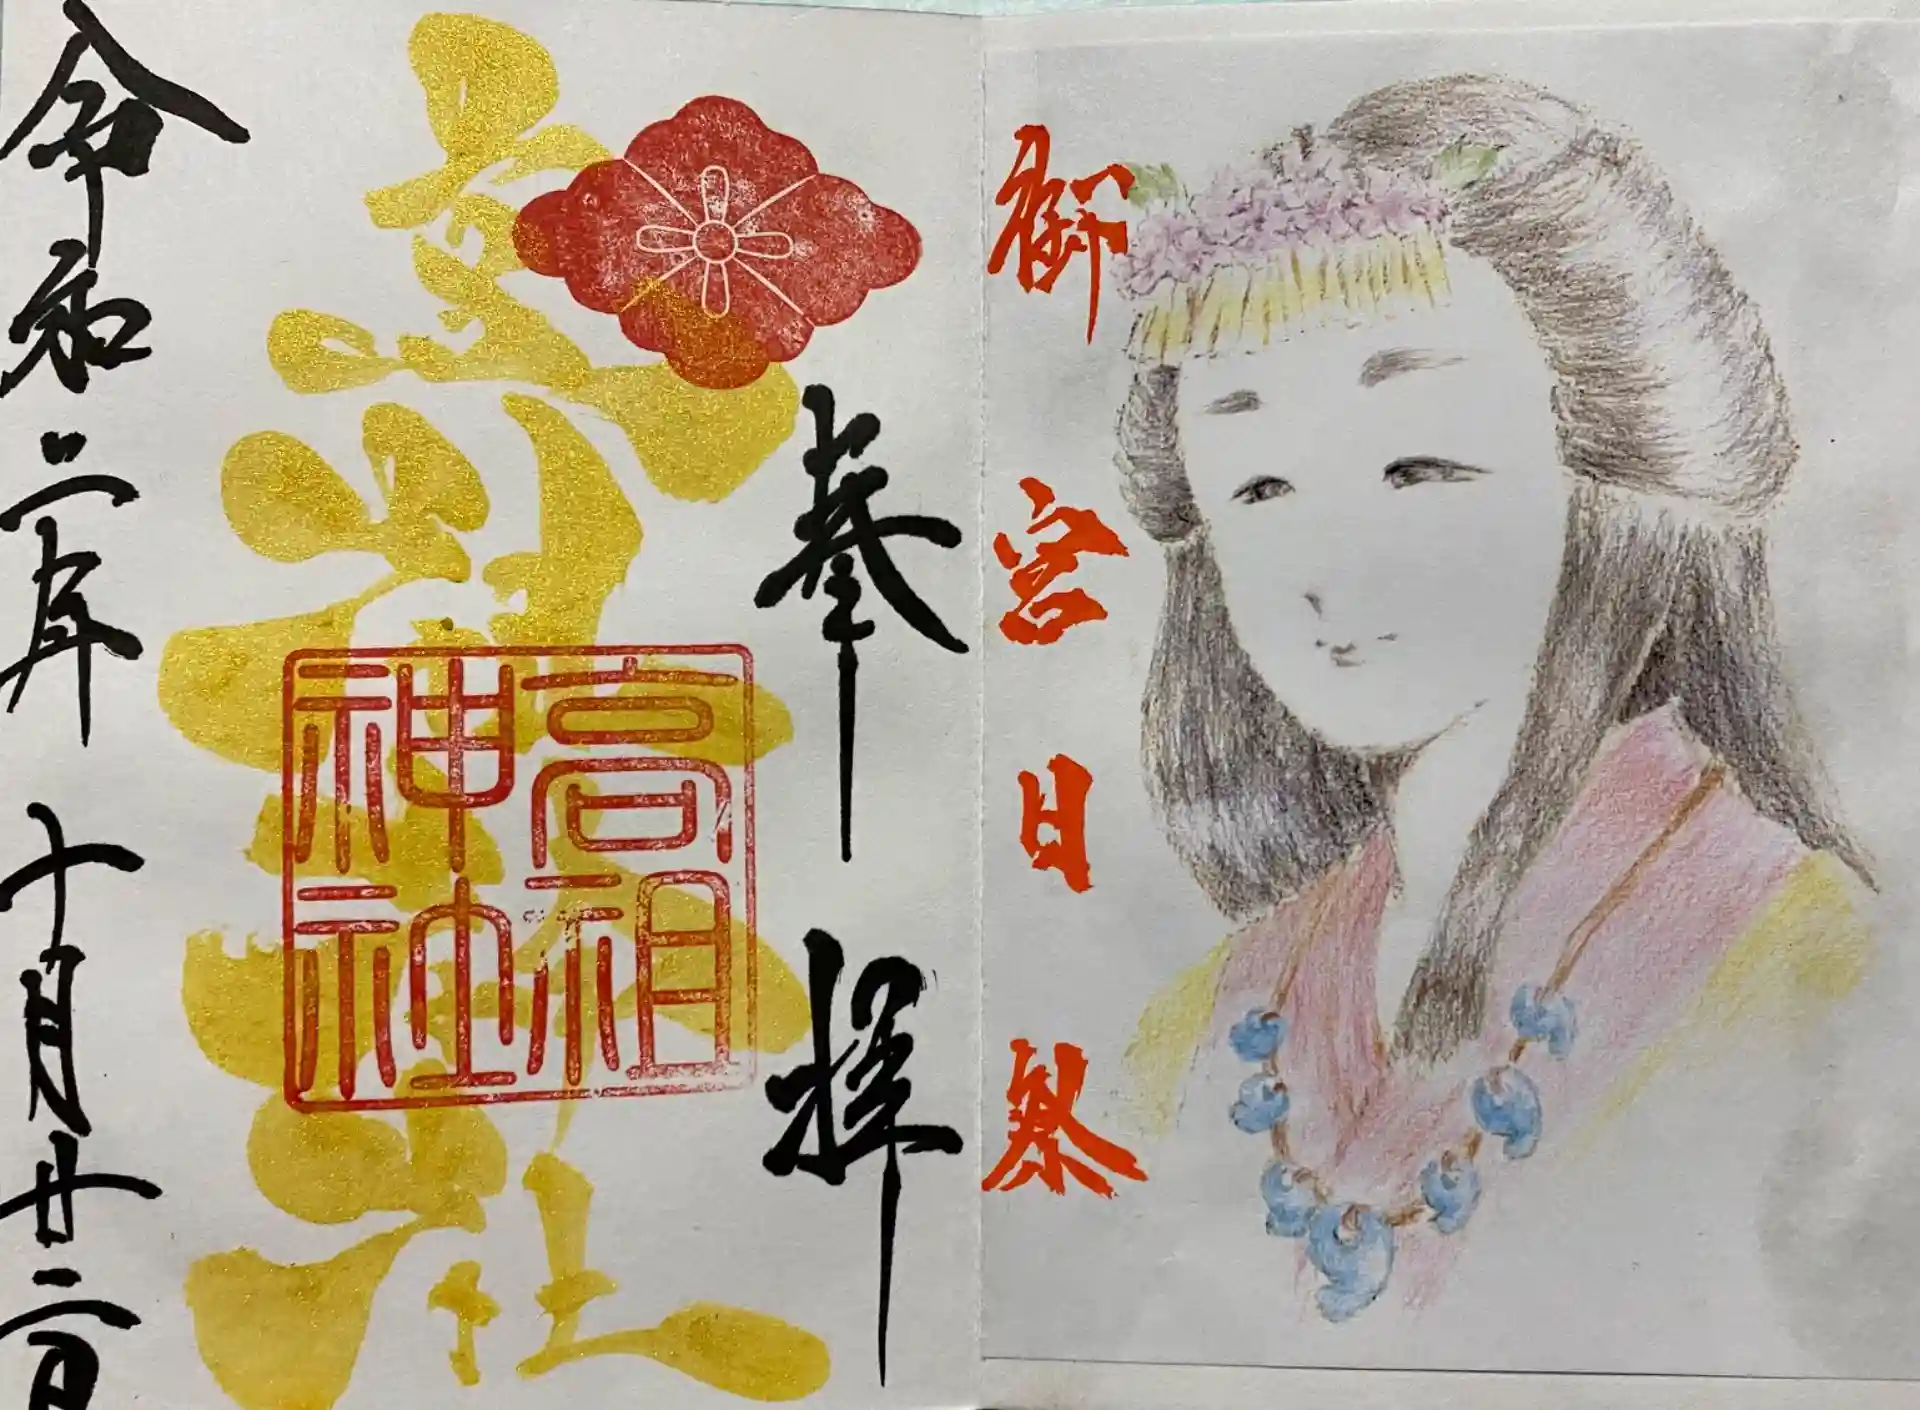 御宮日祭
奉拝
高祖神社
高祖
神社
令和二年 十月廿二日